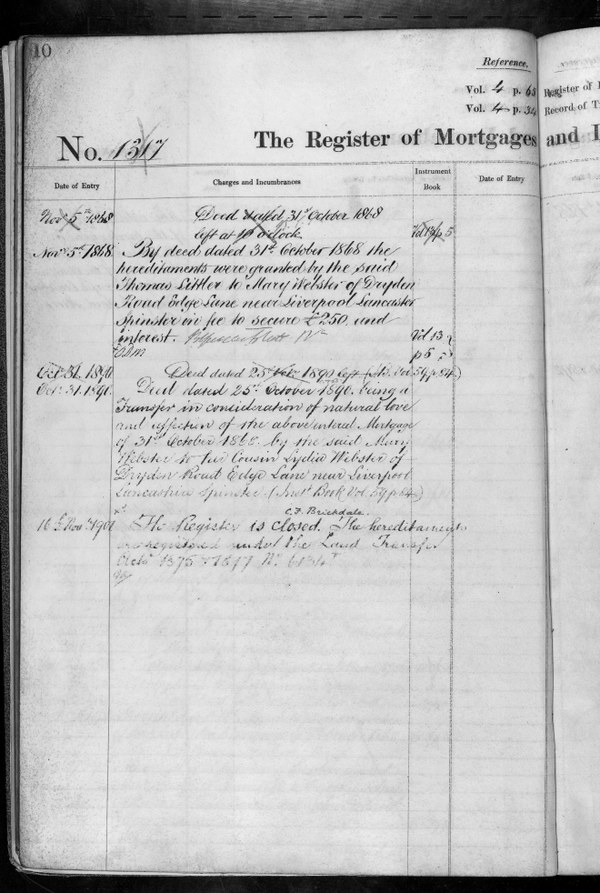 10
Reference.
Vol. 4 p. 65
Vol. 4 p. 34
No. 1317
The Register of Mortgages and I
Register of
Record of T
Date of Entry
Charges and Incumbrances
Instrument
Book
Date of Entry
Novr 5th 1868
Deed dated 31st October 1868
left at o'clock
Vol 13 p 5
Novr 5th 1868
By deed dated 31st October 1868 the
hereditaments were granted by the said
Thomas Littler to Mary Webster of Dryden
Road Edge Lane near Liverpool Lancaster
Spinster in fee to secure £250 and
interest.
Vol 13
p 5
Oct. 31. 1890
Deed dated 25th 1890 left
Oct. 31. 1890.
Deed dated 25th October 1890. being a
Transfer in consideration of natural love
and affection of the above Mortgage
of 31st October 1868. by the said Mary
Webster to her Cousin Lydia Webster of
Dryden Road Edge Lane near Liverpool
Lancashire Spinster (Inst. Book Vol. 59 p 84)
C.F. Brickdale.
16 Nov. 1901
The Register is closed. The hereditaments
are registered under the Land Transfer
Acts 1875 & 1897 No.